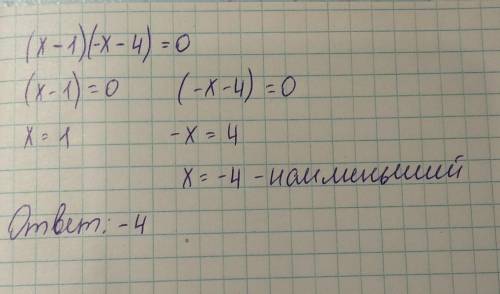 (x-1)(-x-4)=0
(x-1)=0 (-x-4)=0
x=1 -x=4
x=-4 - наименьший
Ответ: -4